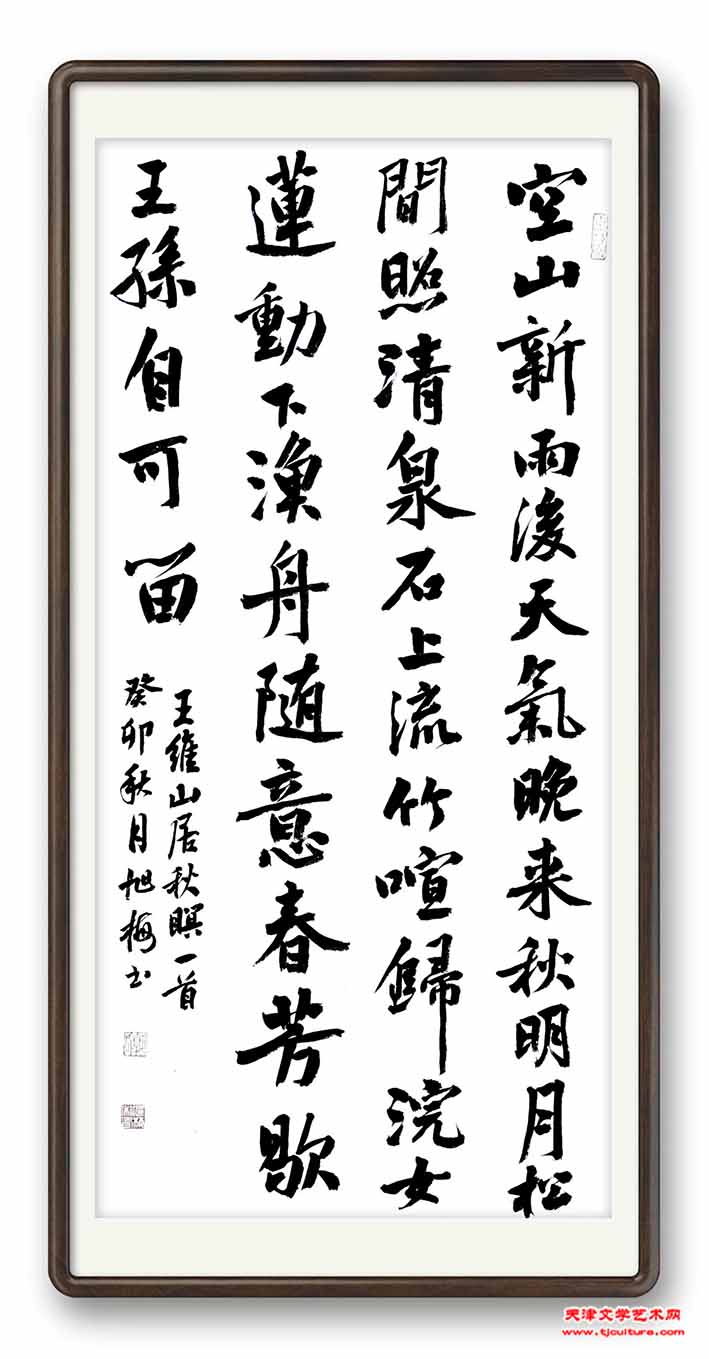 空山新雨後天氣晚来秋明月松
間照清泉石上流竹喧歸浣女
蓮動下漁舟随意春芳歇
王孫自可留
王維山居秋暝一首
癸卯秋月旭梅书
天津文学艺术网
www.tjculture.com